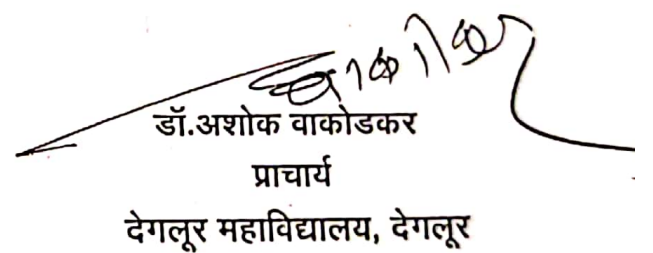 डॉ.अशोक वाकोडकर
प्राचार्य
देगलूर महाविद्यालय, देगलूर